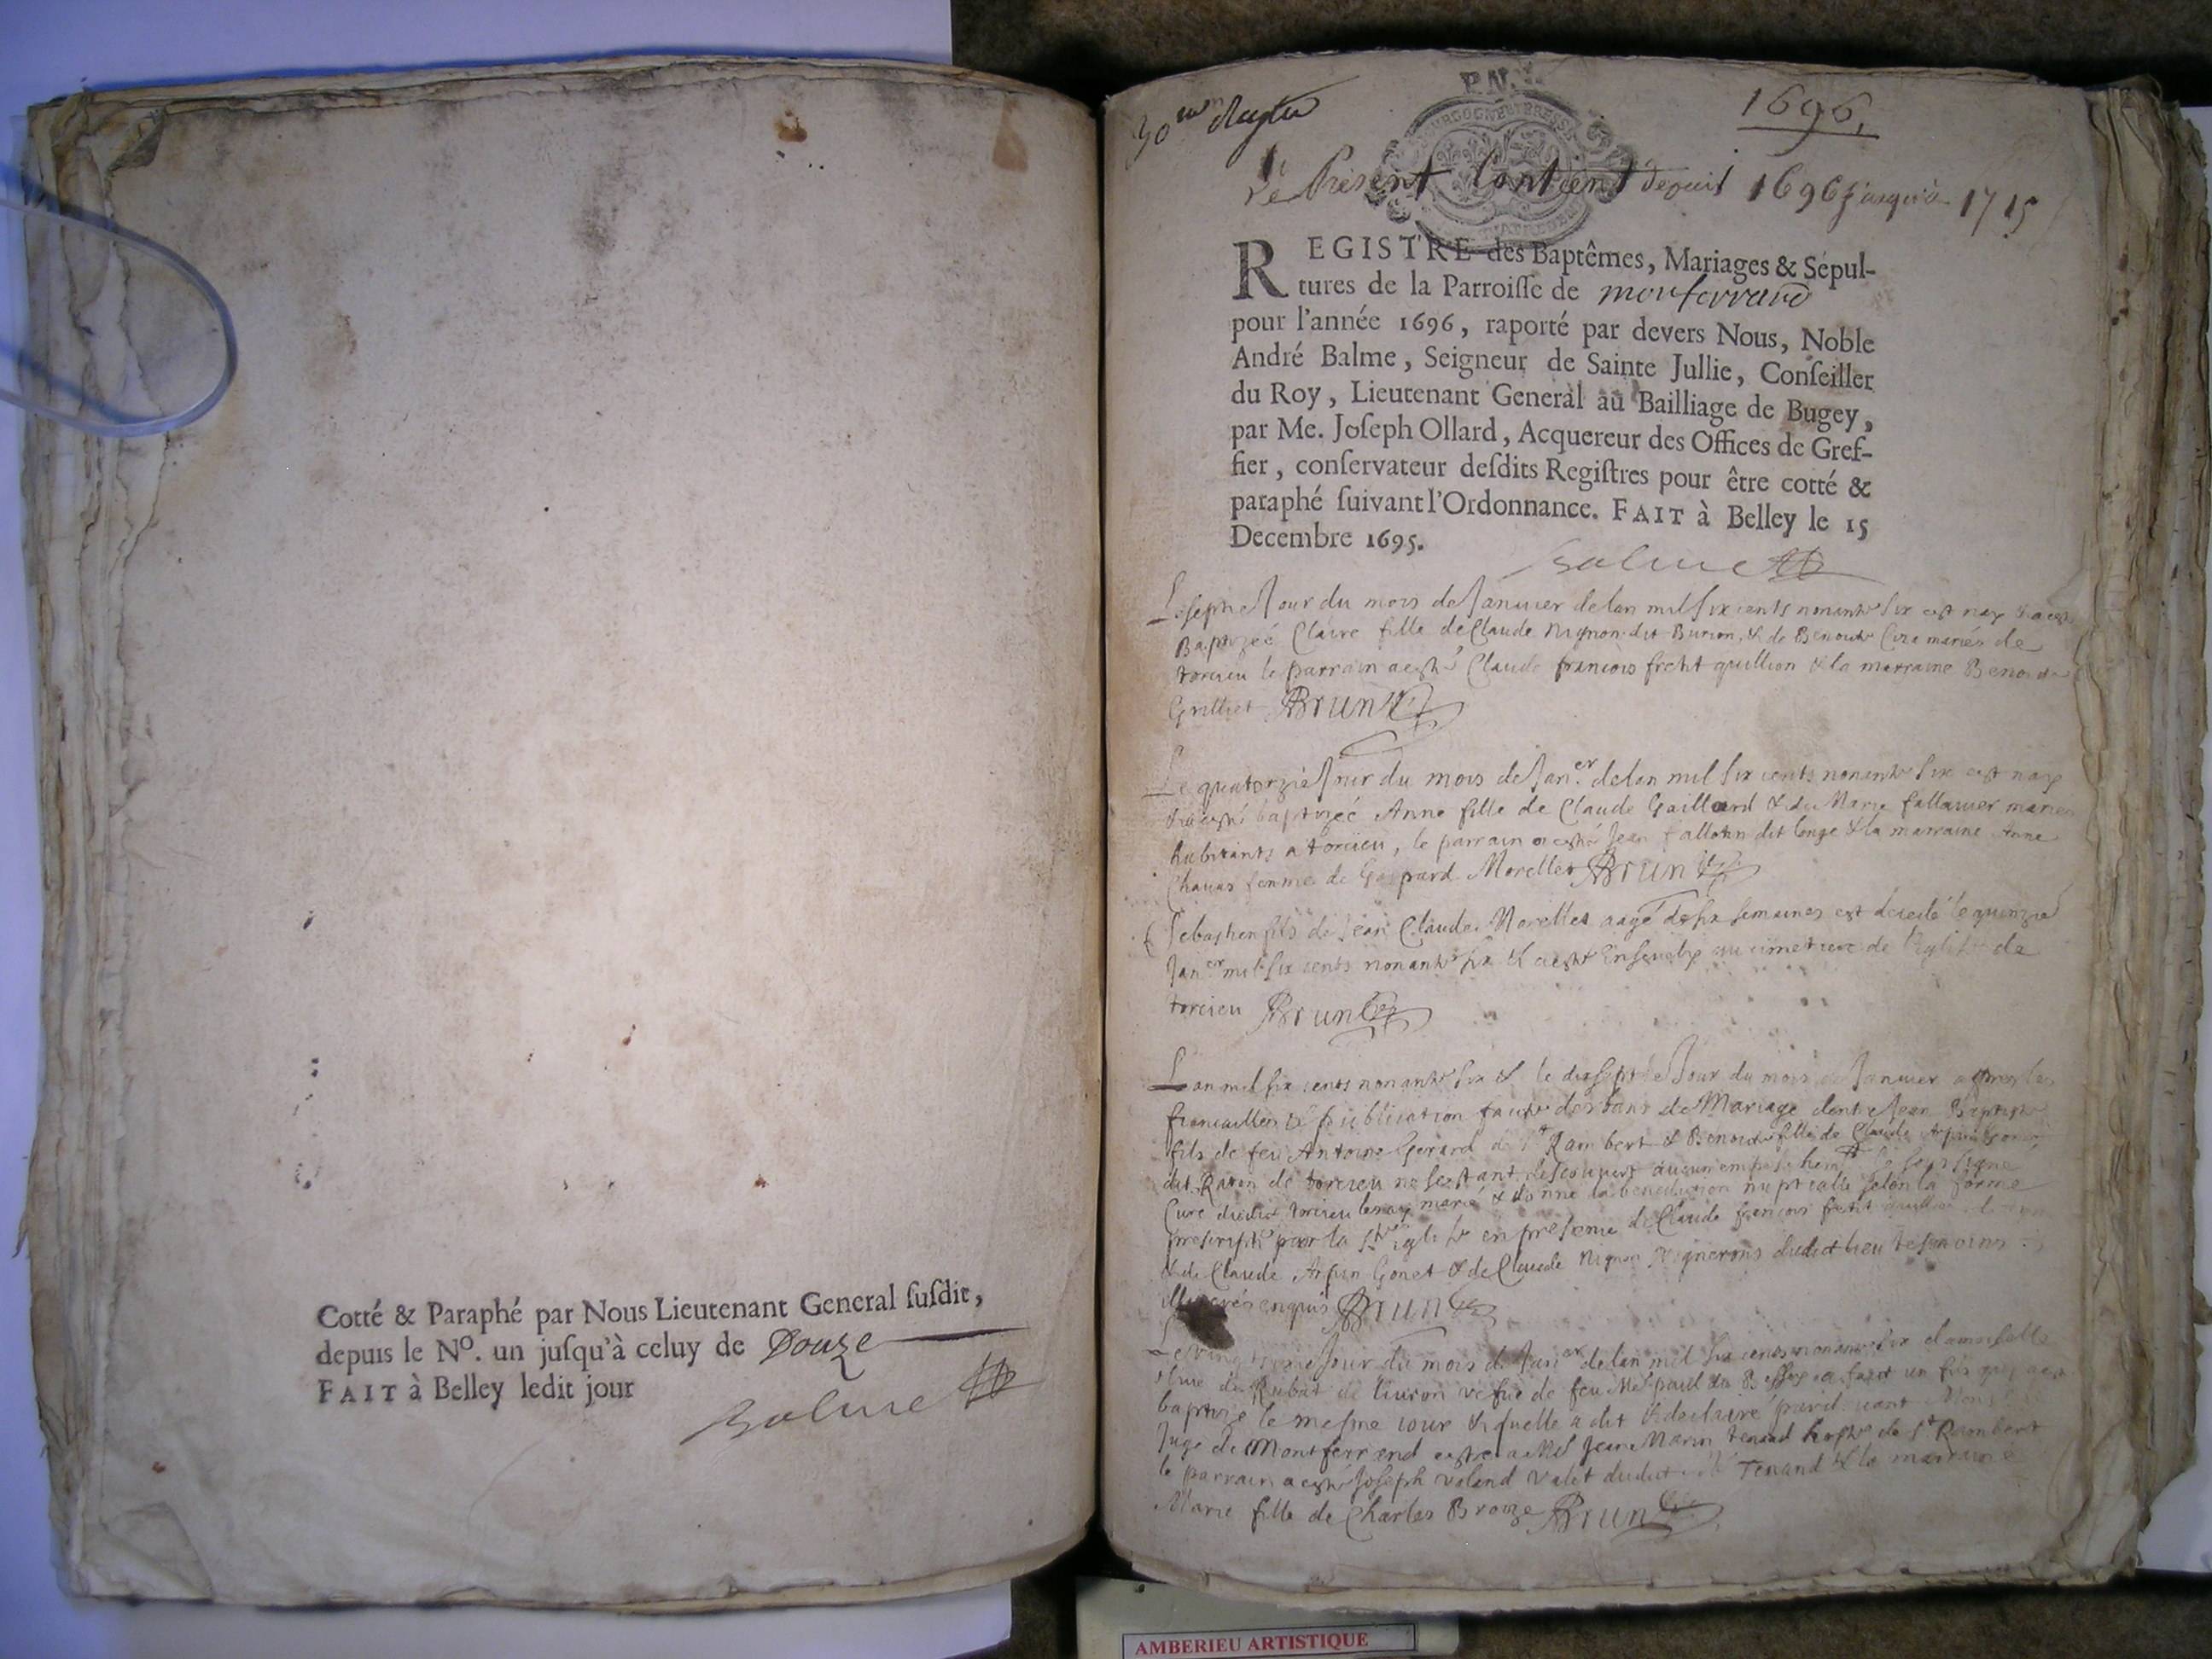 Cotté & Paraphé par Nous Lieutenant General ſuſdit,
depuis le No. un juſqu'à celuy de Douze
FAIT à Belley ledit jour
Balme
1696.
P.N.
BOURGOGNE BRESSE
Le Present Contient depuis 1696 jusqu'à 1715
REGISTRE des Baptêmes, Mariages & Sépul-
tures de la Parroiſſe de monferrand
pour l'année 1696, raporté par devers Nous, Noble
André Balme, Seigneur de Sainte Jullie, Conſeiller
du Roy, Lieutenant General au Bailliage de Bugey,
par Me. Joſeph Ollard, Acquereur des Offices de Gref-
fier, conſervateur deſdits Regiſtres pour être cotté &
paraphé ſuivant l'Ordonnance. FAIT à Belley le 15
Decembre 1695.
Balme
Le septie Jour du mois de Januier de lan mil six cents nonante six est nay & a esté
Baptizée Claire fille de Claude Nignon dit Burion, & de Benoite mariés de
torcieu le parrain a esté Claude francois fretit quillion & la marraine Benoite
Grilliet Brun
Le quatorzie Jour du mois de Janer de lan mil six cents nonante six est nay
& a esté baptizée Anne fille de Claude Gaillard & de Marie fallauier mariés
habitants a torcieu, le parrain a esté Jean fallotin dit longe & la marraine Anne
Chauas femme de Gaspard Morellet Brun
Sebastien fils de Jean Claude Morellet aagé de six semaines est decedé le quinzie
Janer mil six cents nonante six & a esté Enseuely au cimetiere de l'Eglise de
torcieu Brun
Lan mil six cents nonante six & le dixseptie Jour du mois de Januier apres les
fiancailles & publication faite des bans de Mariage dentre Jean Baptiste
fils de feu Antoine Gerard de St Rambert & Benoite fille de Claude
dit Rauon de torcieu ne sestant descouuert aucun empeschemt le soussigné
Curé dudit torcieu lesay marié & donné la benediction nuptialle selon la forme
prescripte par la Ste Eglise en presence de Claude francois fretit
& de Claude Arpin Gonet & de Claude Nignon vignerons dudit lieu tesmoins
illiterés enquis Brun
Le Jour du mois de Janer de lan mil six cents nonante six damoiselle
de Rubat de liuron vefue de feu paul du a fait un fils qui a esté
baptizé le mesme iour & quelle a dit & declaré pardeuant
Juge de Montferrand estre a Jean Marin tenand de St Rambert
le parrain a esté Joseph volend valet dudit Tenand & la marraine
Marie fille de Charles Broize Brun
AMBERIEU ARTISTIQUE